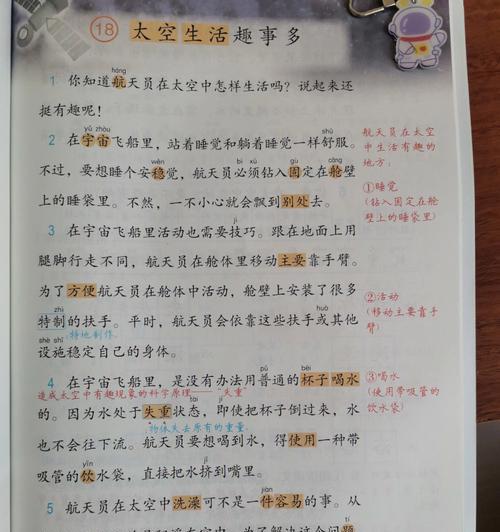 18 太空生活趣事多
háng
1 你知道航天员在太空中怎样生活吗？说起来还
挺有趣呢！
yǔ zhòu shū
2 在宇宙飞船里，站着睡觉和躺着睡觉一样舒服。
wěn bì xū gù cāng
不过，要想睡个安稳觉，航天员必须钻入固定在舱壁
上的睡袋里。不然，一不小心就会飘到别处去。
jì
3 在宇宙飞船里活动也需要技巧。跟在地面上用
腿脚行走不同，航天员在舱体里移动主要靠手臂。
为了方便航天员在舱体中活动，舱壁上安装了很多
zhì huò
特制的扶手。平时，航天员会依靠这些扶手或其他
特地制作。
shè shī
设施稳定自己的身体。
bēi
4 在宇宙飞船里，是没有办法用普通的杯子喝水
造成太空中有趣现象的科学原理——失重
的。因为水处于失重状态，即使把杯子倒过来，水
物体失去原有的重量。
也不会往下流。航天员要想喝到水，得使用一种带
yǐn
吸管的饮水袋，直接把水挤到嘴里。
jiàn
5 航天员在太空中洗澡可不是一件容易的事。从
航天员在太空
中生活有趣的
地方：
①睡觉
(钻入固定在舱
壁上的睡袋里)
②活动
(移动主要靠手
臂)
③喝水
(使用带吸管的
饮水袋)